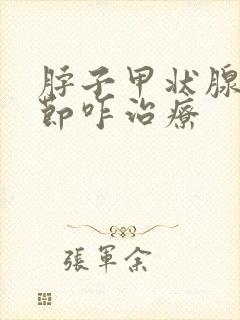 脖子甲状腺
節咋治療
張軍余